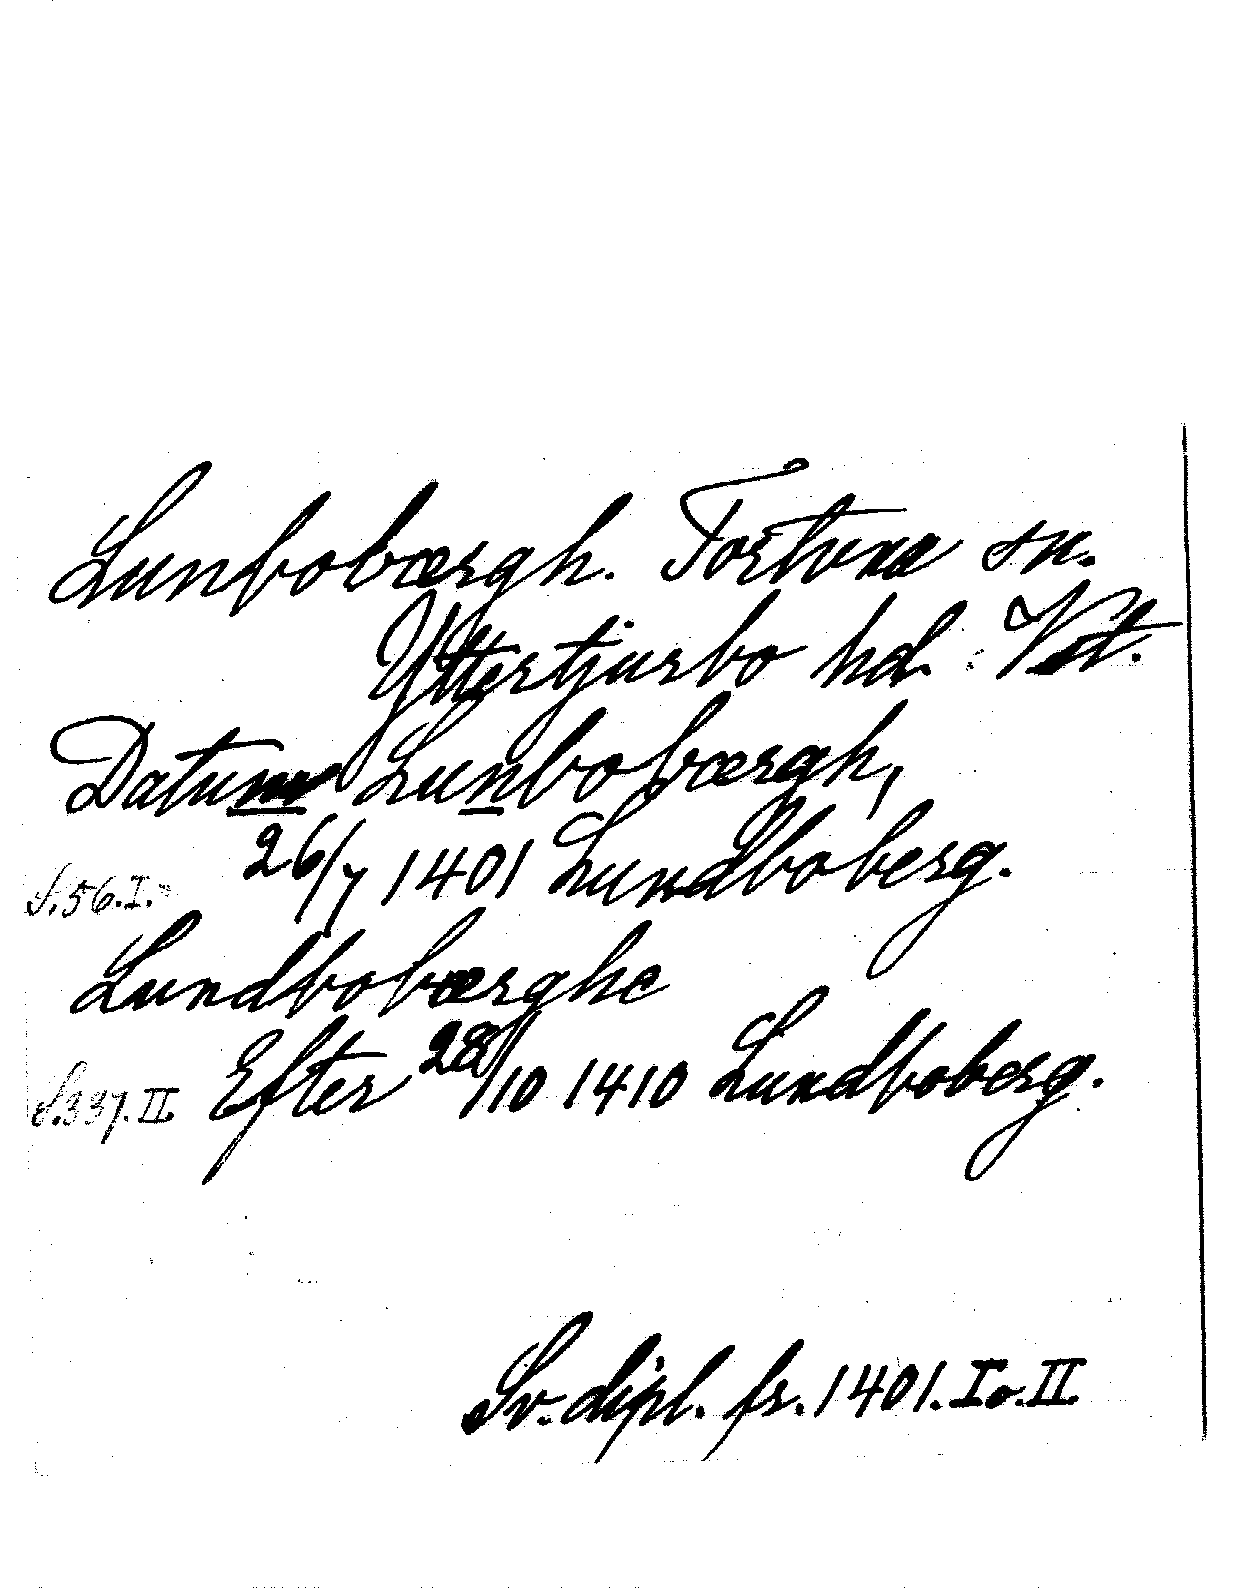 Lunbobærgh. Fortuna sn.
Yttertjurbo hd. Vst.
Datum Lunbobærgh,
26/7 1401 Lundboberg.
S.56.I.
Lundbobærghe
S.337.II. Efter 28/10 1410 Lundboberg.
Sv. dipl. fr. 1401. I o. II.